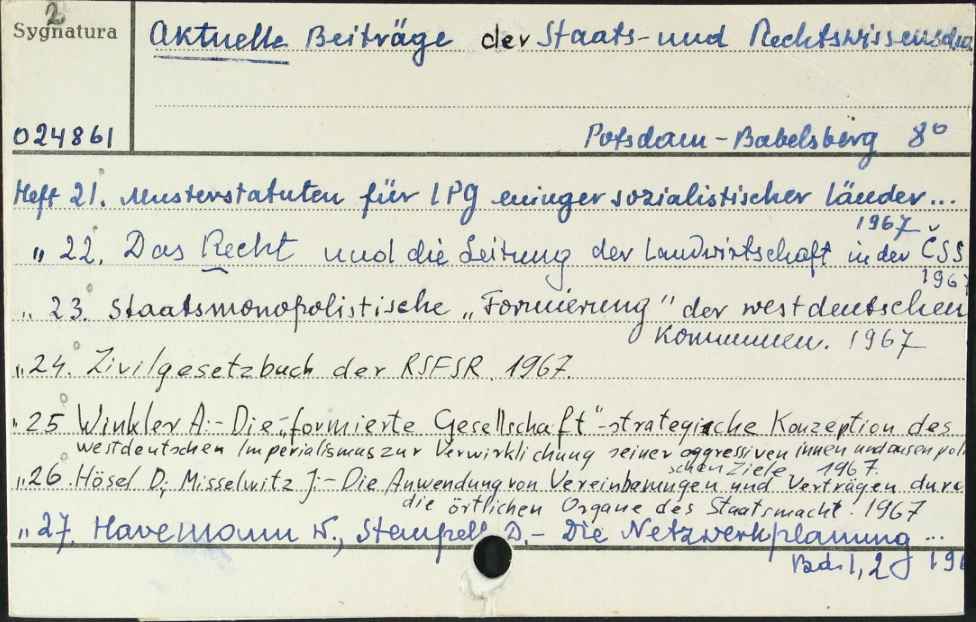 2
Sygnatura
Aktuelle Beiträge der Staats- und Rechtswissenscha
024861
Potsdam-Babelsberg 8°
Heft 21. Musterstatuten für LPG einiger sozialistischer Länder...
1967
" 22. Das Recht und die Leitung der Landwirtschaft in der ČSS
1967
" 23. Staatsmonopolistische „Formierung" der westdeutschen
Kommunen. 1967
" 24. Zivilgesetzbuch der RSFSR. 1967.
" 25 Winkler A:- Die „formierte Gesellschaft"-strategische Konzeption des
westdeutschen Imperialismus zur Verwirklichung seiner aggressiven innen und aussen poli
schen Ziele 1967.
" 26. Hösel D; Misselwitz J:- Die Anwendung von Vereinbarungen und Verträgen durc
die örtlichen Organe des Staatsmacht. 1967
" 27. Havemann W., Stempell D.- Die Netzwerkplanung ...
Bd. 1, 2 19